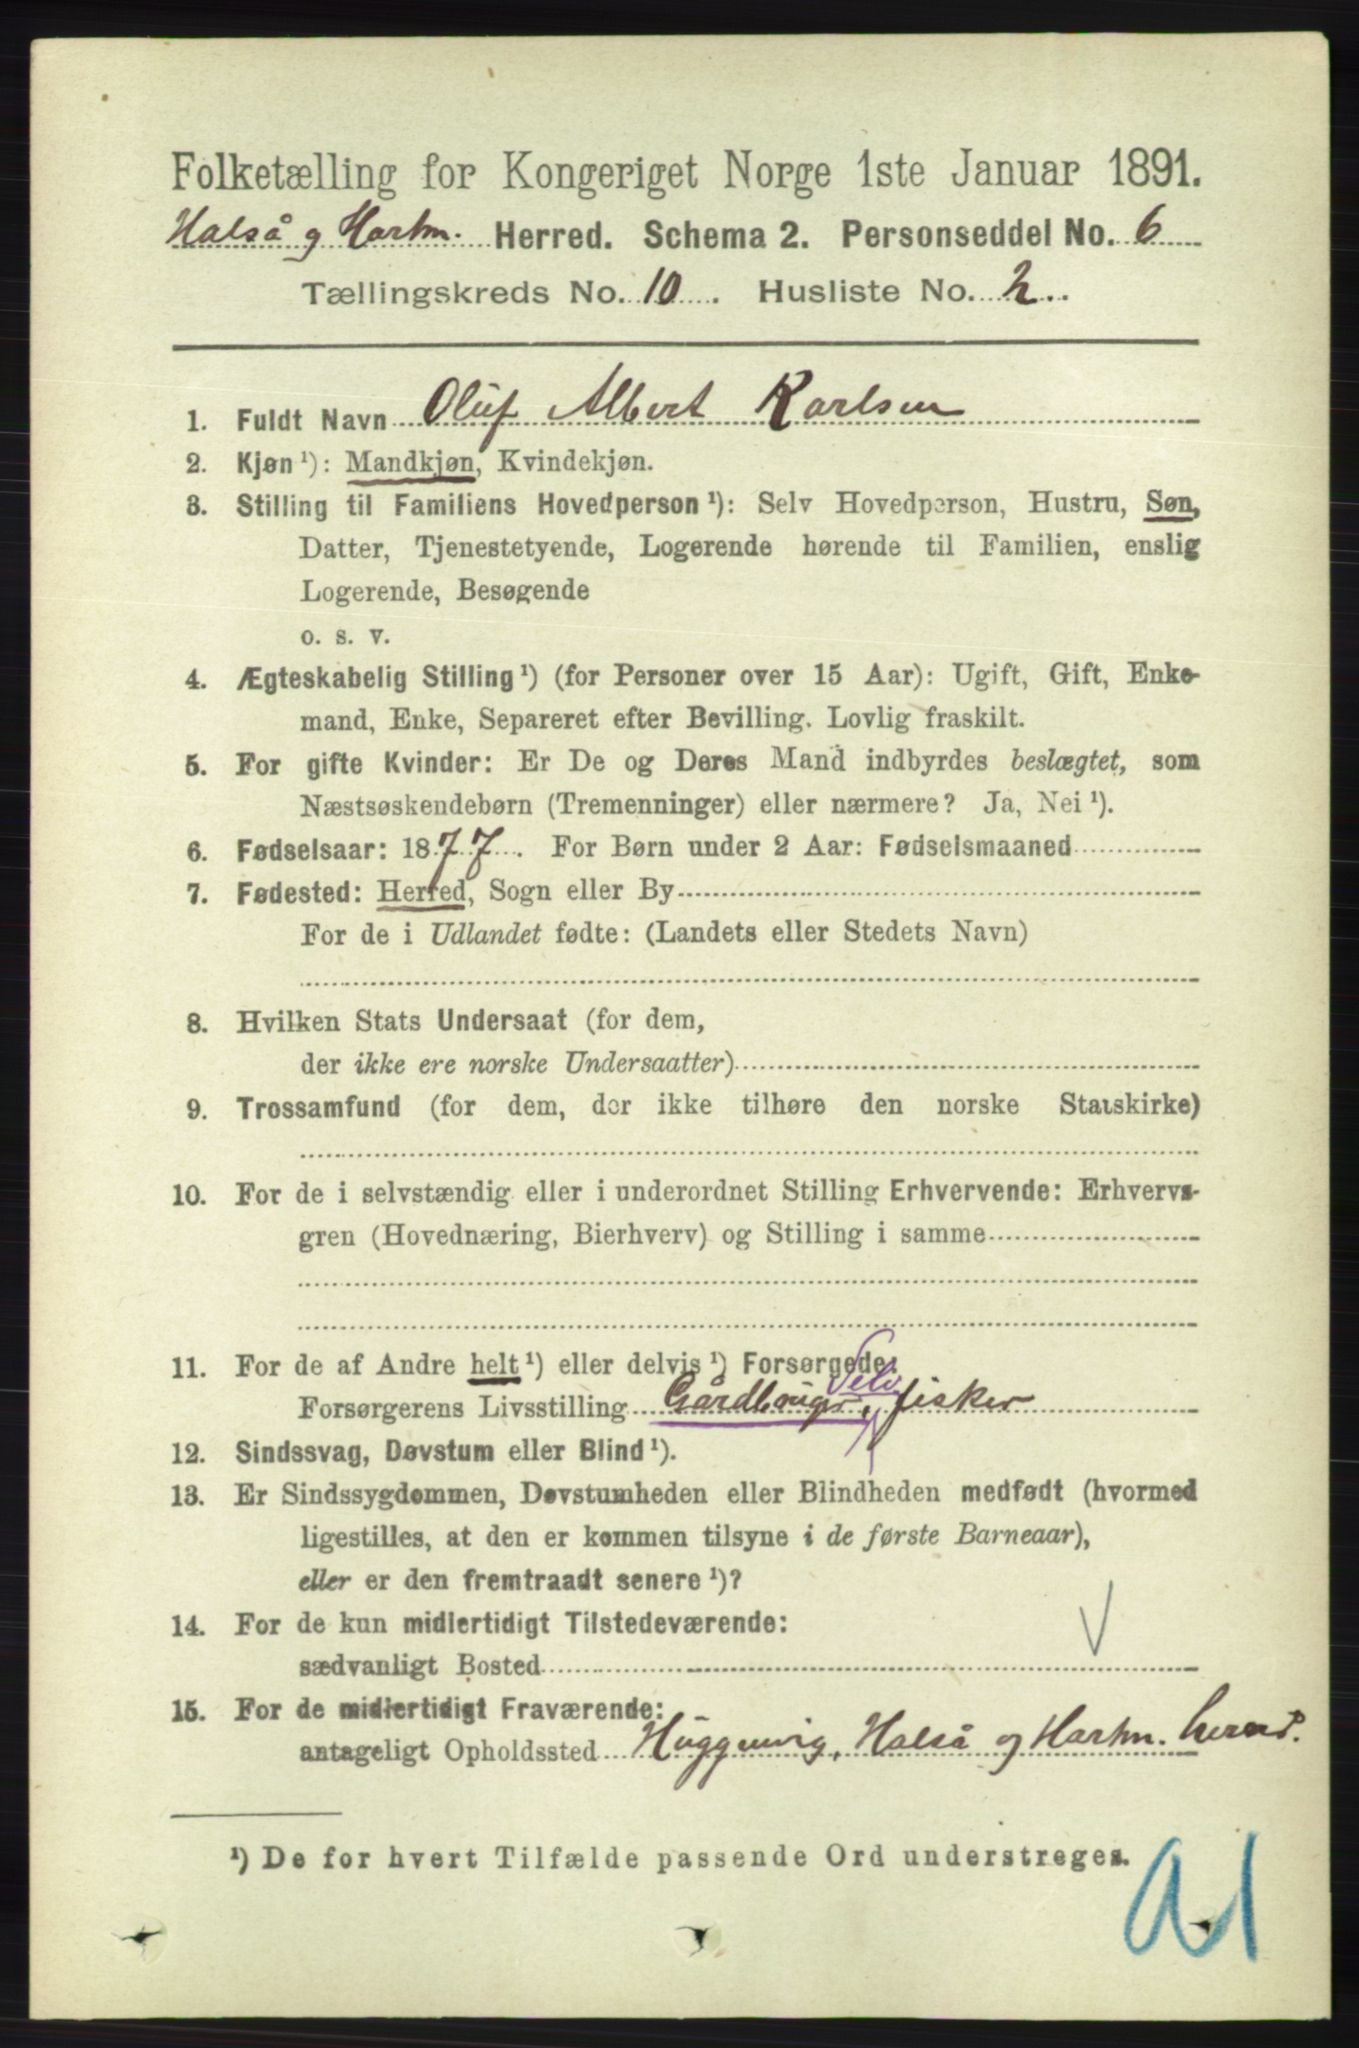 Folketælling for Kongeriget Norge 1ste Januar 1891.
Halså og Harkm. Herred. Schema 2. Personseddel No. 6
Tællingskreds No. 10. Husliste No. 2.
1. Fuldt Navn Oluf Albert Karlsen
2. Kjøn ¹): Mandkjøn, Kvindekjøn.
3. Stilling til Familiens Hovedperson ¹): Selv Hovedperson, Hustru, Søn,
Datter, Tjenestetyende, Logerende hørende til Familien, enslig
Logerende, Besøgende
o. s. v.
4. Ægteskabelig Stilling ¹) (for Personer over 15 Aar): Ugift, Gift, Enke-
mand, Enke, Separeret efter Bevilling. Lovlig fraskilt.
5. For gifte Kvinder: Er De og Deres Mand indbyrdes beslægtet, som
Næstsøskendebørn (Tremenninger) eller nærmere? Ja, Nei ¹).
6. Fødselsaar: 1877. For Børn under 2 Aar: Fødselsmaaned
7. Fødested: Herred, Sogn eller By
For de i Udlandet fødte: (Landets eller Stedets Navn)
8. Hvilken Stats Undersaat (for dem,
der ikke ere norske Undersaatter)
9. Trossamfund (for dem, der ikke tilhøre den norske Statskirke)
10. For de i selvstændig eller i underordnet Stilling Erhvervende: Erhvervs-
gren (Hovednæring, Bierhverv) og Stilling i samme
11. For de af Andre helt ¹) eller delvis ¹) Forsørgede:
Selv
Forsørgerens Livsstilling Gårdbruger, fisker
12. Sindssvag, Døvstum eller Blind ¹).
13. Er Sindssygdommen, Døvstumheden eller Blindheden medfødt (hvormed
ligestilles, at den er kommen tilsyne i de første Barneaar),
eller er den fremtraadt senere ¹)?
14. For de kun midlertidigt Tilstedeværende:
sædvanligt Bosted
15. For de midlertidigt Fraværende:
antageligt Opholdssted Huggenvig, Halså og Harkm. herred.
¹) De for hvert Tilfælde passende Ord understreges.